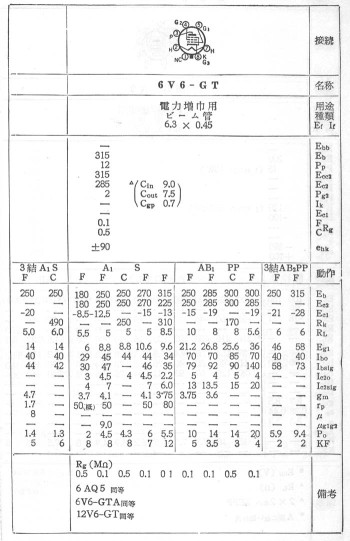 G2 G3
P
H H
NC K G3
接続
6V6-GT 名称
電力増巾用 用途
ビーム管 種類
6.3 × 0.45 Ef If
— Ebb
315 Eb
12 Pp
315 Ecc2
285 Ec2
2 Pg2
— Ik
— Ec1
0.1 F
0.5 C Rg
±90 ehk
Cin 9.0
Cout 7.5
Cgp 0.7
3結 A1 S A1 S AB1 PP 3結AB1PP 動作
F C F F C F F F F C F F F
250 250 180 250 250 270 315 250 285 300 300 250 315 Eb
— — 180 250 250 270 225 250 285 300 285 — — Ec2
-20 — -8.5 -12.5 — -15 -13 -15 -19 — -19 -21 -28 Ec1
— 490 — — 250 — 310 — — 170 — — — Rk
5.0 6.0 5.5 5 5 5 8.5 10 8 8 5.6 6 6 RL
14 14 6 8.8 8.8 10.6 9.6 21.2 26.8 25.6 36 46 58 Eg1
40 40 29 45 44 44 34 70 70 85 70 40 40 Ibo
44 42 30 47 — 46 35 79 92 90 140 58 73 Ibsig
— — 3 4.5 4 4.5 2.2 5 4 5 4 — — Ic2o
— — 4 7 — 7 6.0 13 13.5 15 20 — — Ic2sig
4.7 — 3.7 4.1 — 4.1 3.75 3.75 3.6 — — — — gm
1.7 — 50(概) 50 — 50 80 — — — — — — rp
8 — — — — — — — — — — — — μ
— — — 9.0 — — — — — — — — — μg1g2
1.4 1.3 2 4.5 4.3 6 5.5 10 14 14 20 5.9 9.4 Po
5 6 8 8 8 7 12 5 3.5 3 4 2 2 KF
Rg (MΩ)
0.5 0.1 0.5 0.1 0.1 0.1 0.1 0.5 0.1
6AQ5 同等
6V6-GTA同等
12V6-GT同等
備考